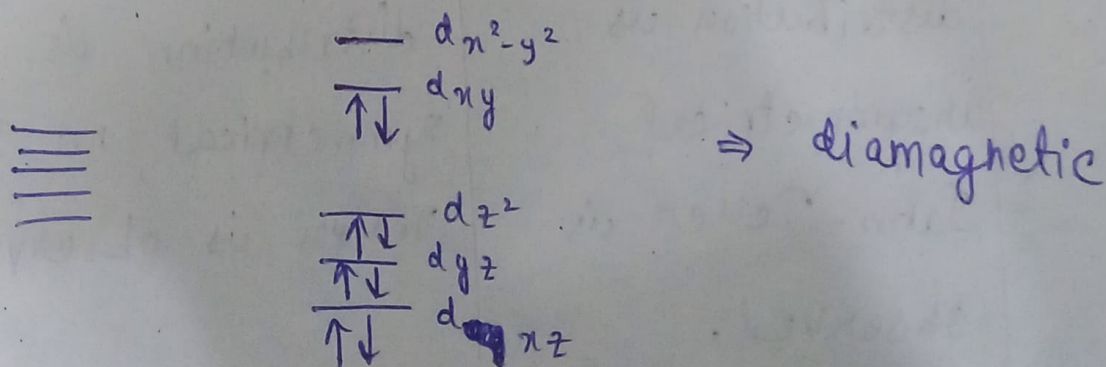 dx²-y²
dxy
⇒ diamagnetic
dz²
dyz
dxz